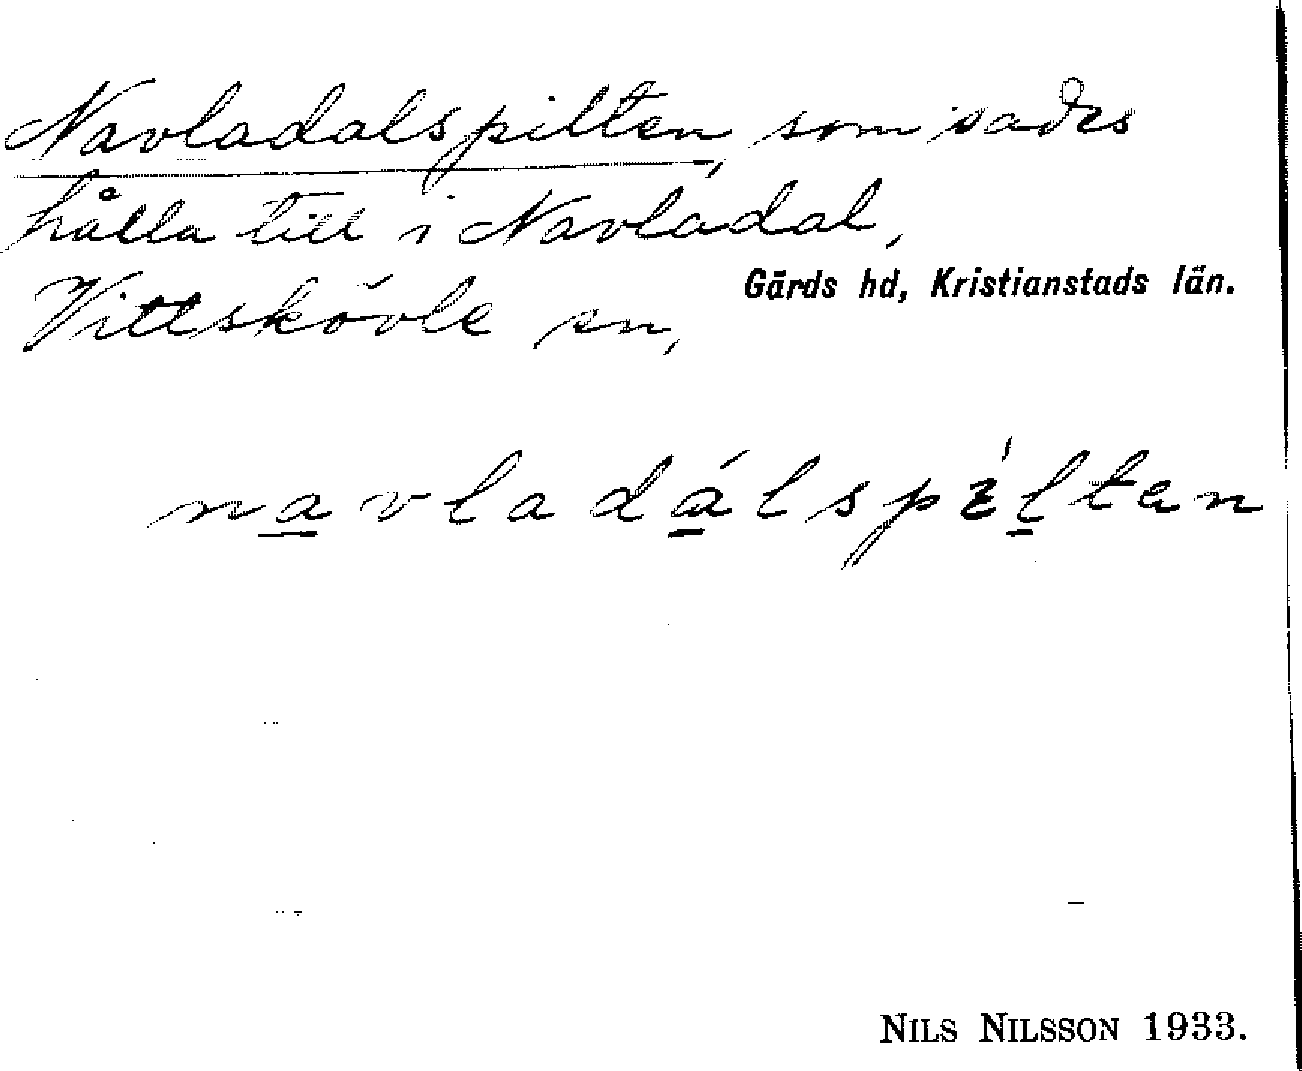 Navladalspilten, som sades
hålla till i Navladal,
Vittskövle sn,
Gärds hd, Kristianstads län.
navladálspíltan
NILS NILSSON 1933.